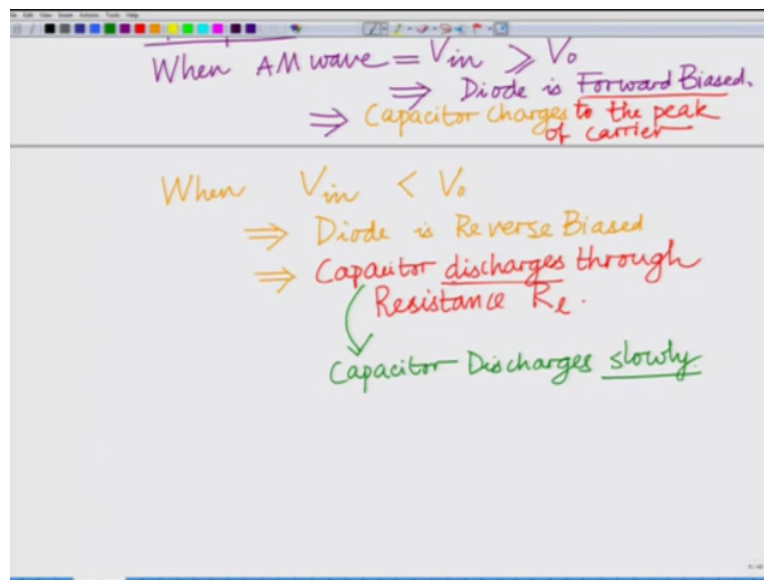 When AM wave = Vin ≥ Vo
⇒ Diode is Forward Biased.
⇒ Capacitor Charges to the peak
of carrier
When Vin < Vo
⇒ Diode is Reverse Biased
⇒ Capacitor discharges through
Resistance Re.
Capacitor Discharges slowly.